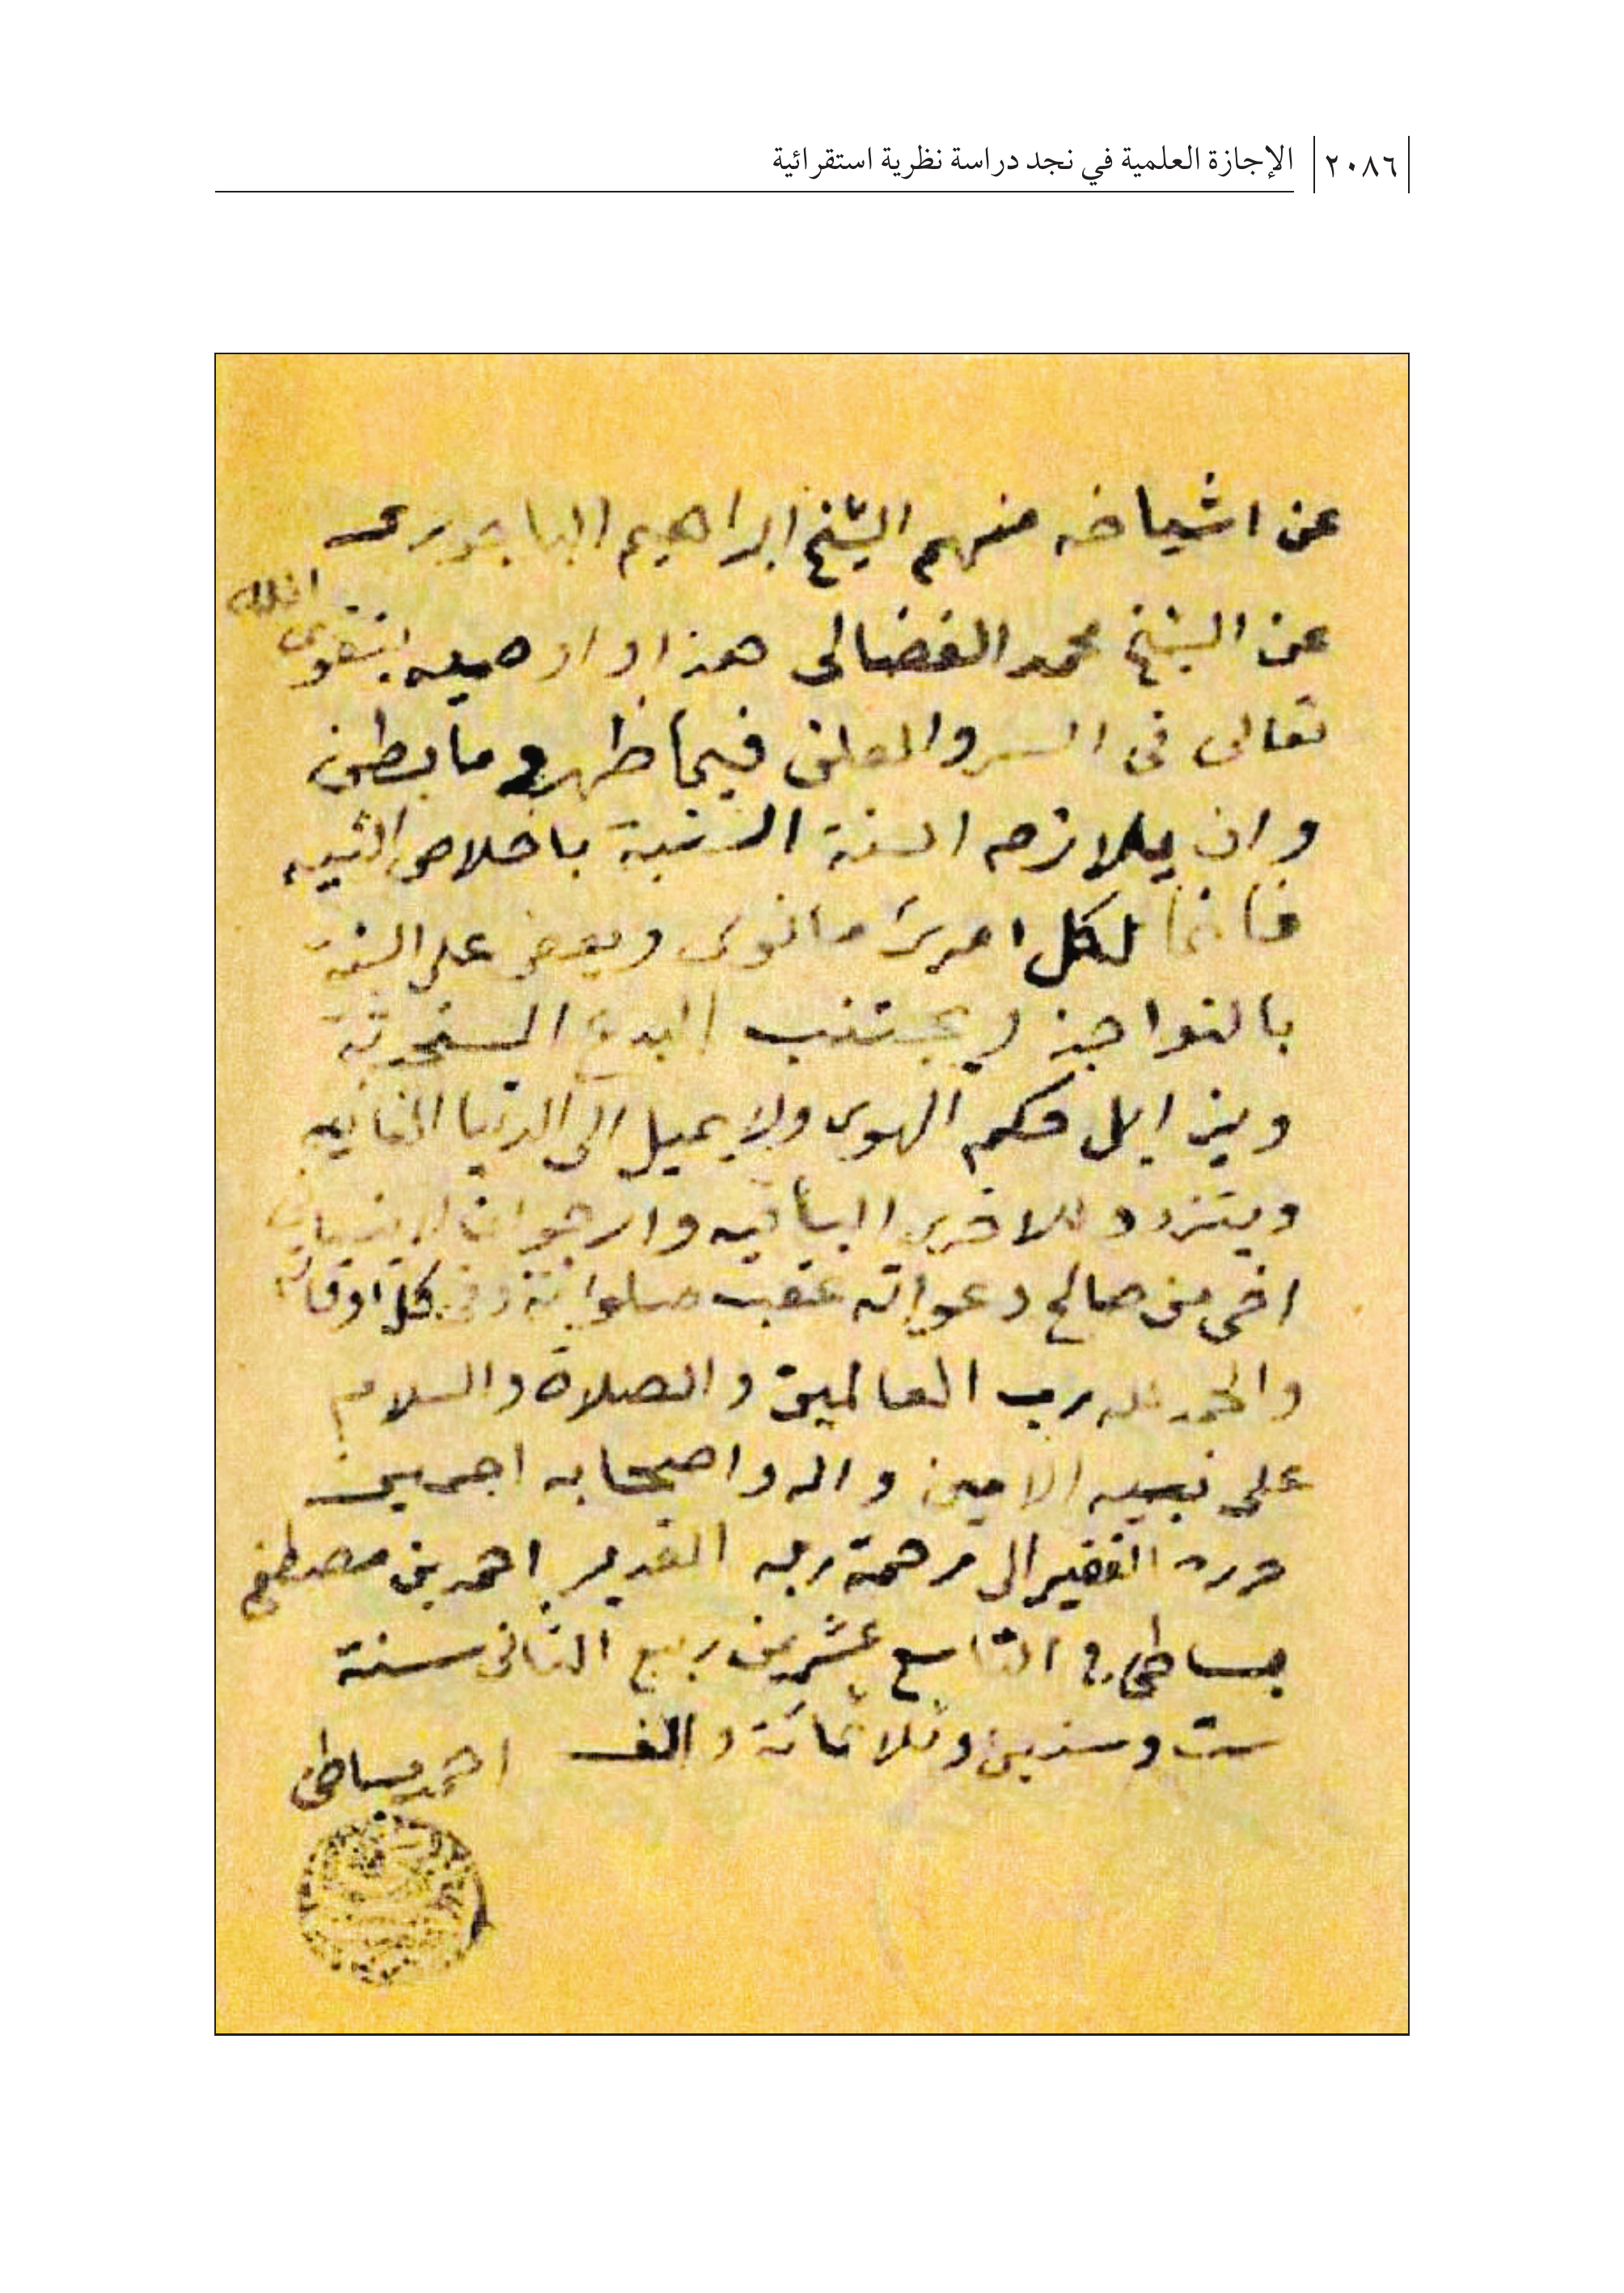 ٢٠٨٦ الإجازة العلمية في نجد دراسة نظرية استقرائية
عن اشياخه منهم الشيخ ابراهيم الباجورى
عن الشيخ محمد الفضالى هذا واوصيه بتقوى الله
تعالى فى السر والعلن فيما ظهر وما بطن
وان يلازم السنة السنية باخلاص النيه
فانما لكل امرئ مانوى ويعض على السنة
بالنواجذ ويجتنب البدع المستحدثة
ويزايل حكم الهوى ولا يميل الى الدنيا الفانيه
ويتزود للاخرى الباقيه وارجوان لا ينسانى
اخى من صالح دعواته عقب صلواته وفى كل اوقاته
والحمد لله رب العالمين والصلاة والسلام
على نبييه الامين واله واصحابه اجمعين
حرره الفقير الى رحمة ربه القدير احمد بن مصطفى
بساطى فى التاسع عشر من ربيع الثانى سنة
ست وستين وثلاثمائة والف احمد بساطى